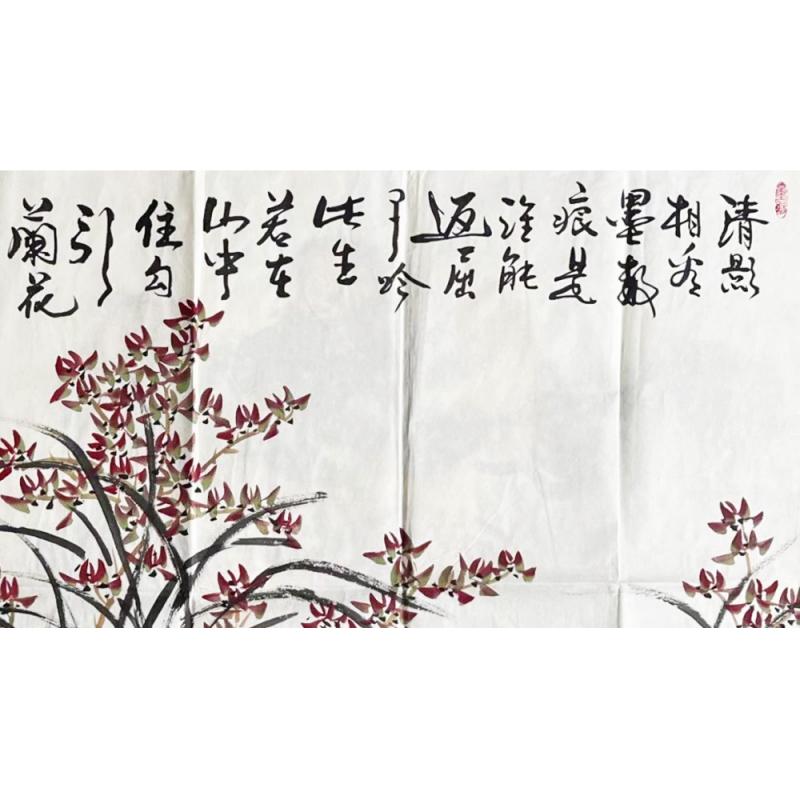 清影
相看
墨数
痕是
谁能
返屈
子吟
此生
若在
山中
住勾
引
蘭花